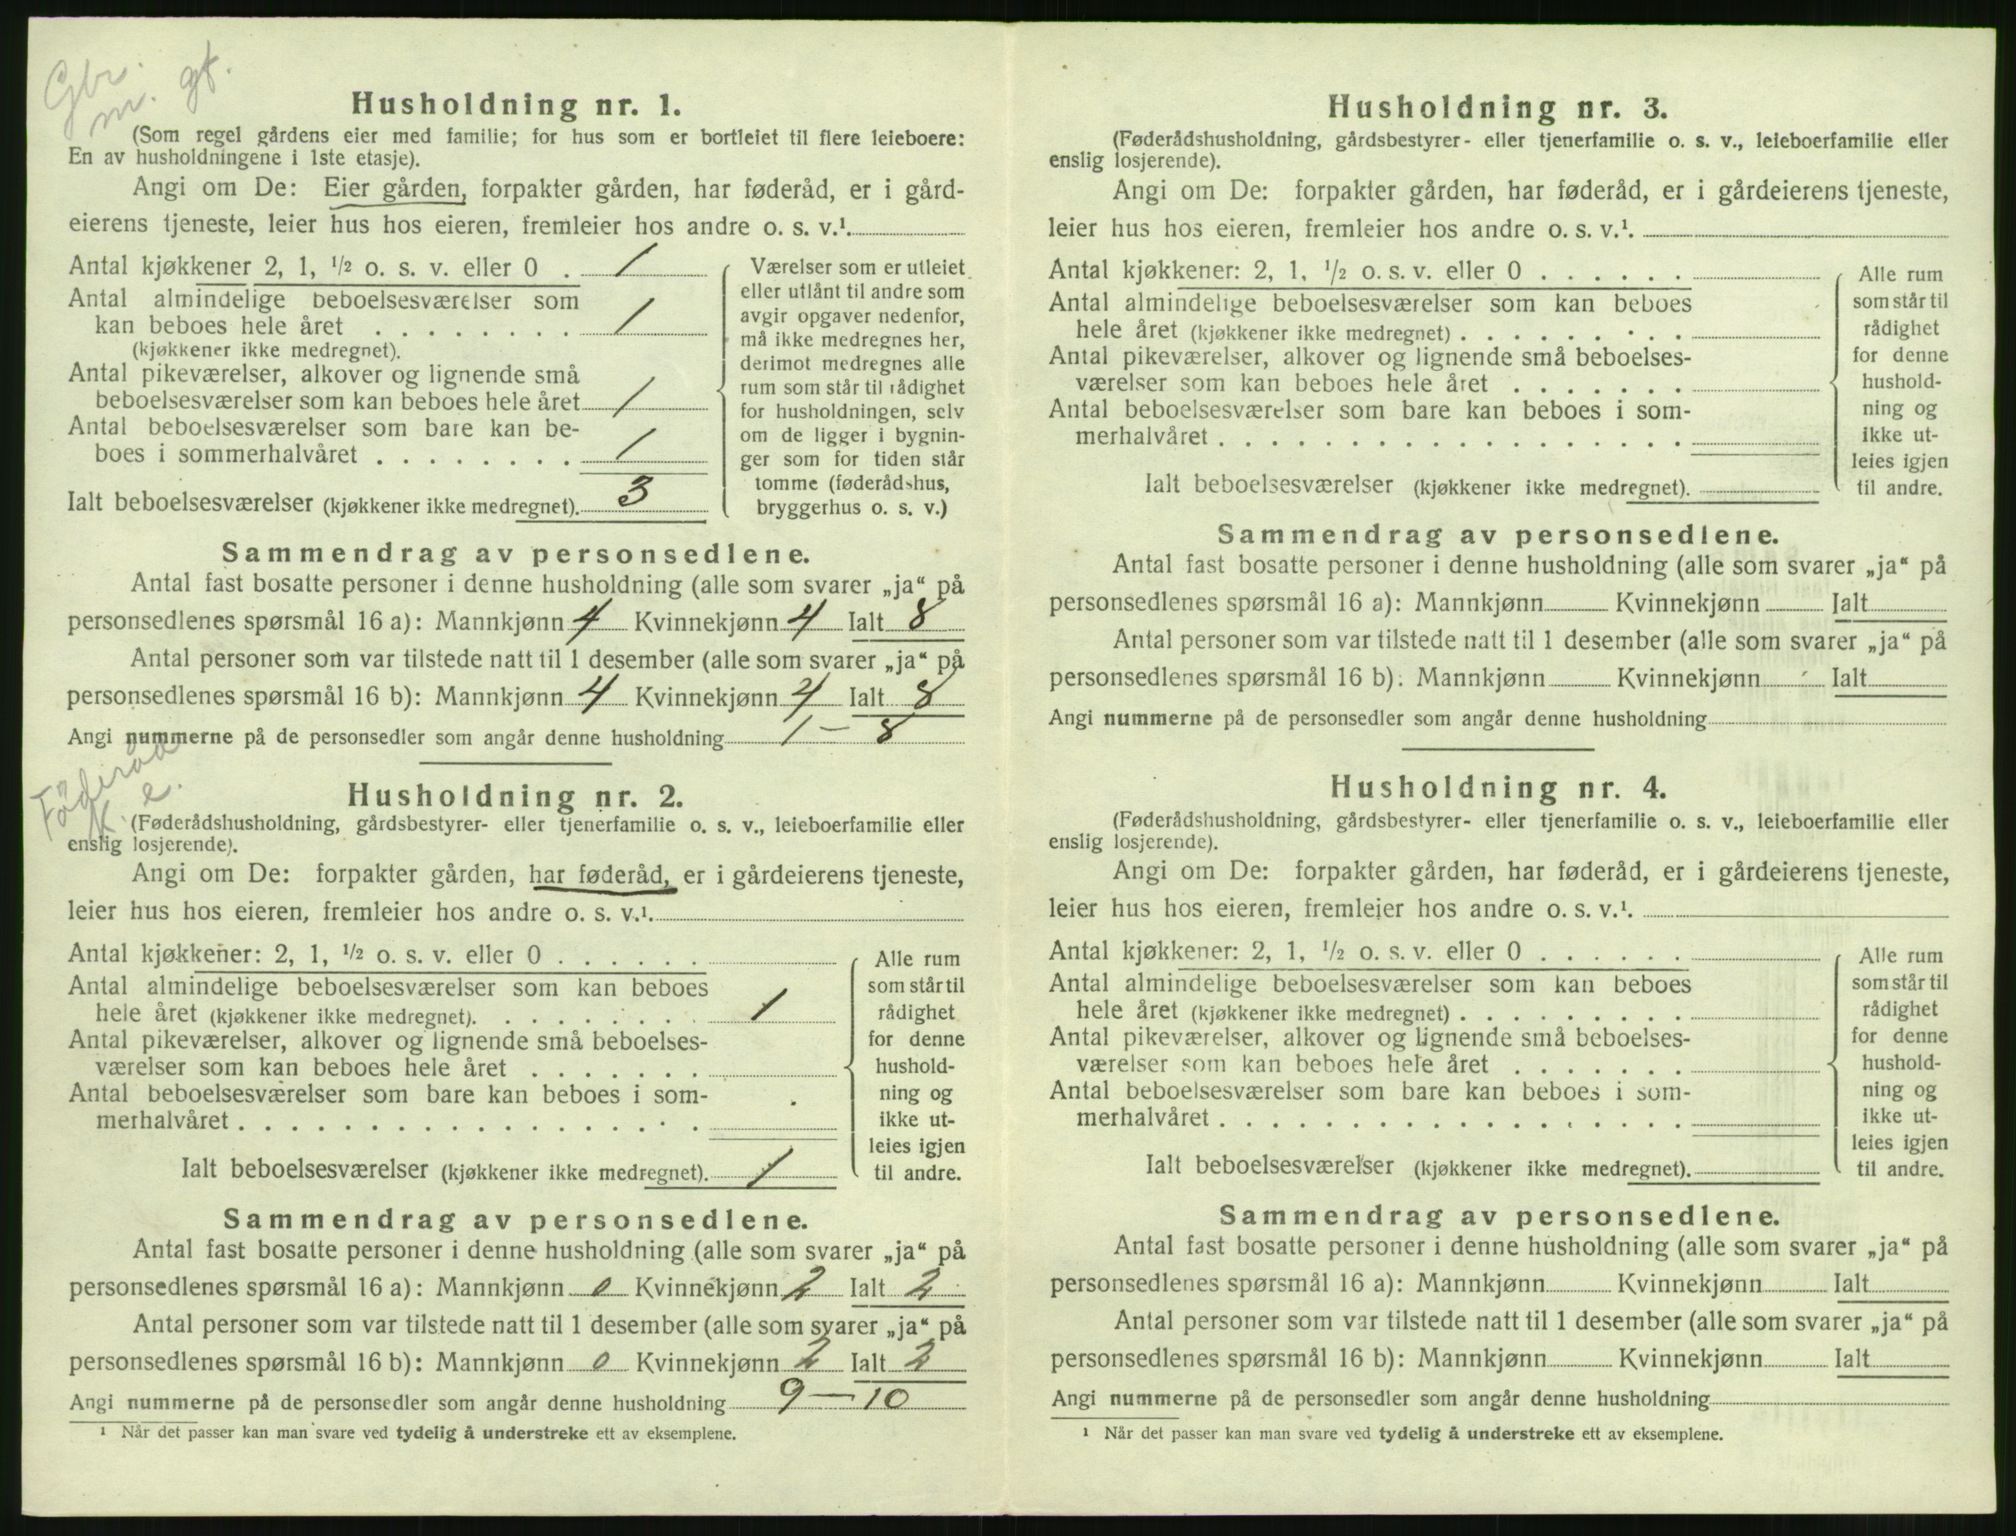 Gbr.
m. gf.
Husholdning nr. 1.
(Som regel gårdens eier med familie; for hus som er bortleiet til flere leieboere:
En av husholdningene i 1ste etasje).
Angi om De: Eier gården, forpakter gården, har føderåd, er i gård-
eierens tjeneste, leier hus hos eieren, fremleier hos andre o. s. v.¹.
Antal kjøkkener 2, 1, ½ o. s. v. eller 0 . 1
Antal almindelige beboelsesværelser som
kan beboes hele året . . . . . . . . 1
(kjøkkener ikke medregnet).
Antal pikeværelser, alkover og lignende små
beboelsesværelser som kan beboes hele året 1
Antal beboelsesværelser som bare kan be-
boes i sommerhalvåret . . . . . . . . 1
Ialt beboelsesværelser (kjøkkener ikke medregnet). 3
Værelser som er utleiet
eller utlånt til andre som
avgir opgaver nedenfor,
må ikke medregnes her,
derimot medregnes alle
rum som står til rådighet
for husholdningen, selv
om de ligger i bygnin-
ger som for tiden står
tomme (føderådshus,
bryggerhus o. s. v.)
Sammendrag av personsedlene.
Antal fast bosatte personer i denne husholdning (alle som svarer „ja“ på
personsedlenes spørsmål 16 a): Mannkjønn 4 Kvinnekjønn 4 Ialt 8
Antal personer som var tilstede natt til 1 desember (alle som svarer „ja“ på
personsedlenes spørsmål 16 b): Mannkjønn 4 Kvinnekjønn 4 Ialt 8
Angi nummerne på de personsedler som angår denne husholdning 1 — 8
Føderåd
k. e.
Husholdning nr. 2.
(Føderådshusholdning, gårdsbestyrer- eller tjenerfamilie o. s. v., leieboerfamilie eller
enslig losjerende).
Angi om De: forpakter gården, har føderåd, er i gårdeierens tjeneste,
leier hus hos eieren, fremleier hos andre o. s. v.¹.
Antal kjøkkener: 2, 1, ½ o. s. v. eller 0 . . . . . .
Antal almindelige beboelsesværelser som kan beboes
hele året (kjøkkener ikke medregnet). . . . . . . . . 1
Antal pikeværelser, alkover og lignende små beboelses-
værelser som kan beboes hele året . . . . . . .
Antal beboelsesværelser som bare kan beboes i som-
merhalvåret . . . . . . . . . . . . . . . . . .
Ialt beboelsesværelser (kjøkkener ikke medregnet). 1
Alle rum
som står til
rådighet
for denne
hushold-
ning og
ikke ut-
leies igjen
til andre.
Sammendrag av personsedlene.
Antal fast bosatte personer i denne husholdning (alle som svarer „ja“ på
personsedlenes spørsmål 16 a): Mannkjønn 0 Kvinnekjønn 2 Ialt 2
Antal personer som var tilstede natt til 1 desember (alle som svarer „ja“ på
personsedlenes spørsmål 16 b): Mannkjønn 0 Kvinnekjønn 2 Ialt 2
Angi nummerne på de personsedler som angår denne husholdning 9 — 10
¹ Når det passer kan man svare ved tydelig å understreke ett av eksemplene.
Husholdning nr. 3.
(Føderådshusholdning, gårdsbestyrer- eller tjenerfamilie o. s. v., leieboerfamilie eller
enslig losjerende).
Angi om De: forpakter gården, har føderåd, er i gårdeierens tjeneste,
leier hus hos eieren, fremleier hos andre o. s. v.¹.
Antal kjøkkener: 2, 1, ½ o. s. v. eller 0 . . . . . .
Antal almindelige beboelsesværelser som kan beboes
hele året (kjøkkener ikke medregnet) . . . . . . . . .
Antal pikeværelser, alkover og lignende små beboelses-
værelser som kan beboes hele året . . . . . . .
Antal beboelsesværelser som bare kan beboes i som-
merhalvåret . . . . . . . . . . . . . . . . . .
Ialt beboelsesværelser (kjøkkener ikke medregnet).
Alle rum
som står til
rådighet
for denne
hushold-
ning og
ikke ut-
leies igjen
til andre.
Sammendrag av personsedlene.
Antal fast bosatte personer i denne husholdning (alle som svarer „ja“ på
personsedlenes spørsmål 16 a): Mannkjønn Kvinnekjønn Ialt
Antal personer som var tilstede natt til 1 desember (alle som svarer „ja“ på
personsedlenes spørsmål 16 b): Mannkjønn Kvinnekjønn Ialt
Angi nummerne på de personsedler som angår denne husholdning
Husholdning nr. 4.
(Føderådshusholdning, gårdsbestyrer- eller tjenerfamilie o. s. v., leieboerfamilie eller
enslig losjerende).
Angi om De: forpakter gården, har føderåd, er i gårdeierens tjeneste,
leier hus hos eieren, fremleier hos andre o. s. v.¹.
Antal kjøkkener: 2, 1, ½ o. s. v. eller 0 . . . . . .
Antal almindelige beboelsesværelser som kan beboes
hele året (kjøkkener ikke medregnet) . . . . . . . . .
Antal pikeværelser, alkover og lignende små beboelses-
værelser som kan beboes hele året . . . . . . .
Antal beboelsesværelser som bare kan beboes i som-
merhalvåret . . . . . . . . . . . . . . . . . .
Ialt beboelsesværelser (kjøkkener ikke medregnet).
Alle rum
som står til
rådighet
for denne
hushold-
ning og
ikke ut-
leies igjen
til andre.
Sammendrag av personsedlene.
Antal fast bosatte personer i denne husholdning (alle som svarer „ja“ på
personsedlenes spørsmål 16 a): Mannkjønn Kvinnekjønn Ialt
Antal personer som var tilstede natt til 1 desember (alle som svarer „ja“ på
personsedlenes spørsmål 16 b): Mannkjønn Kvinnekjønn Ialt
Angi nummerne på de personsedler som angår denne husholdning
¹ Når det passer kan man svare ved tydelig å understreke ett av eksemplene.